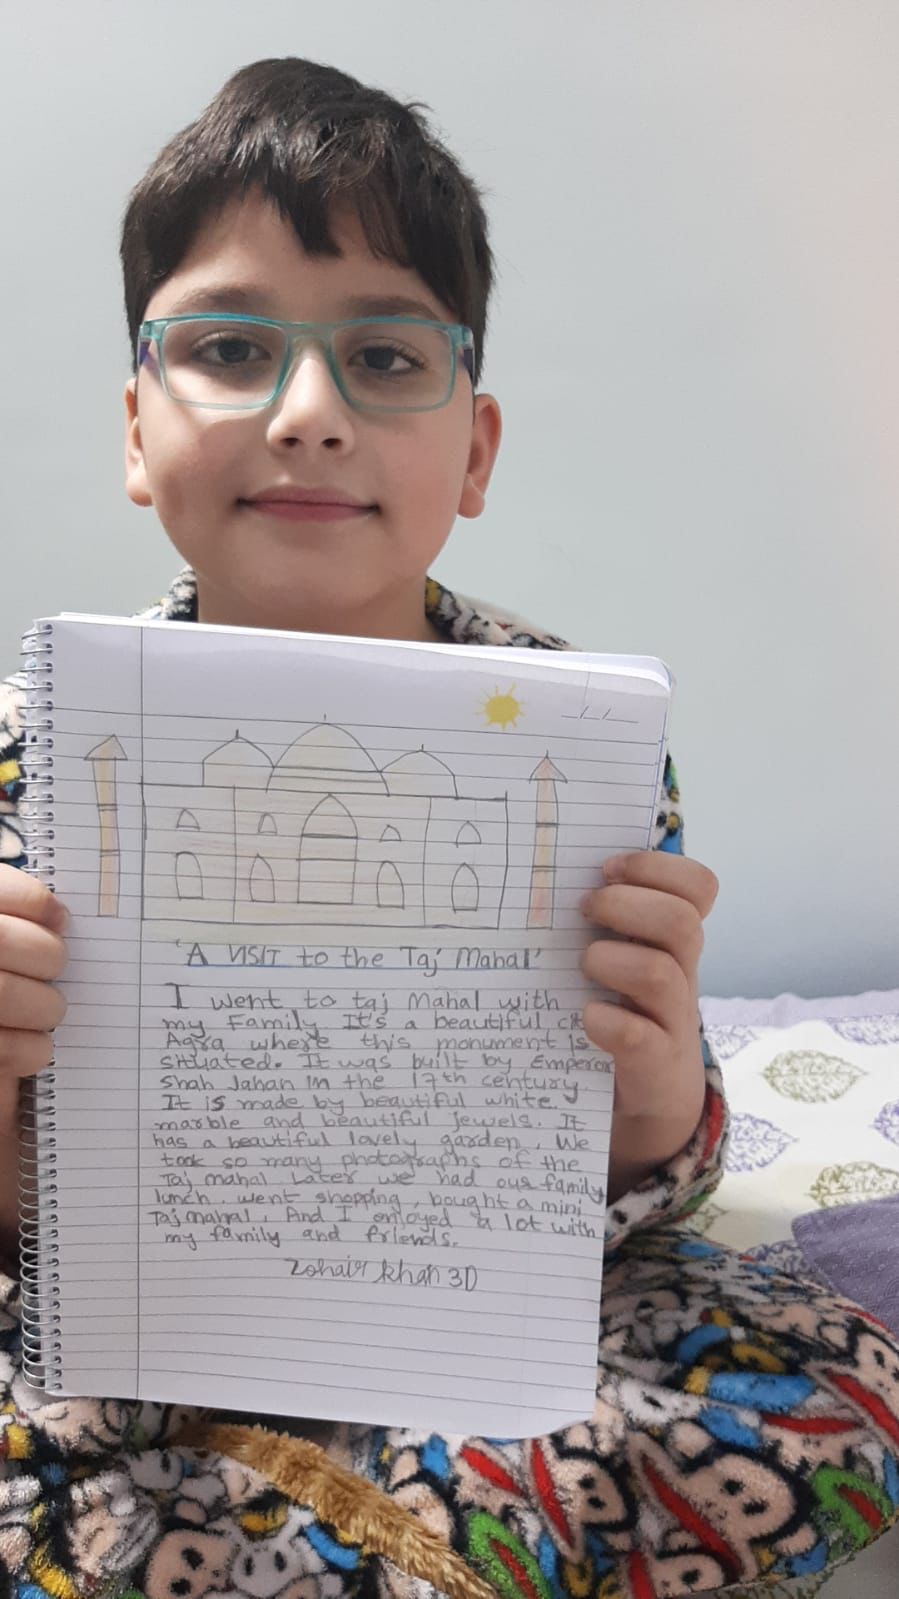 'A VISIT to the Taj Mahal'
I went to taj Mahal with
my Family. It's a beautiful
Agra where this monument is
situated. It was built by Emperor
Shah Jahan in the 17th century.
It is made by beautiful white
marble and beautiful jewels. It
has a beautiful lovely garden. We
took so many photographs of the
Taj mahal. Later we had our family
lunch. went shopping, bought a mini
Taj mahal. And I enjoyed a lot with
my family and friends.
Zohair khan 3D